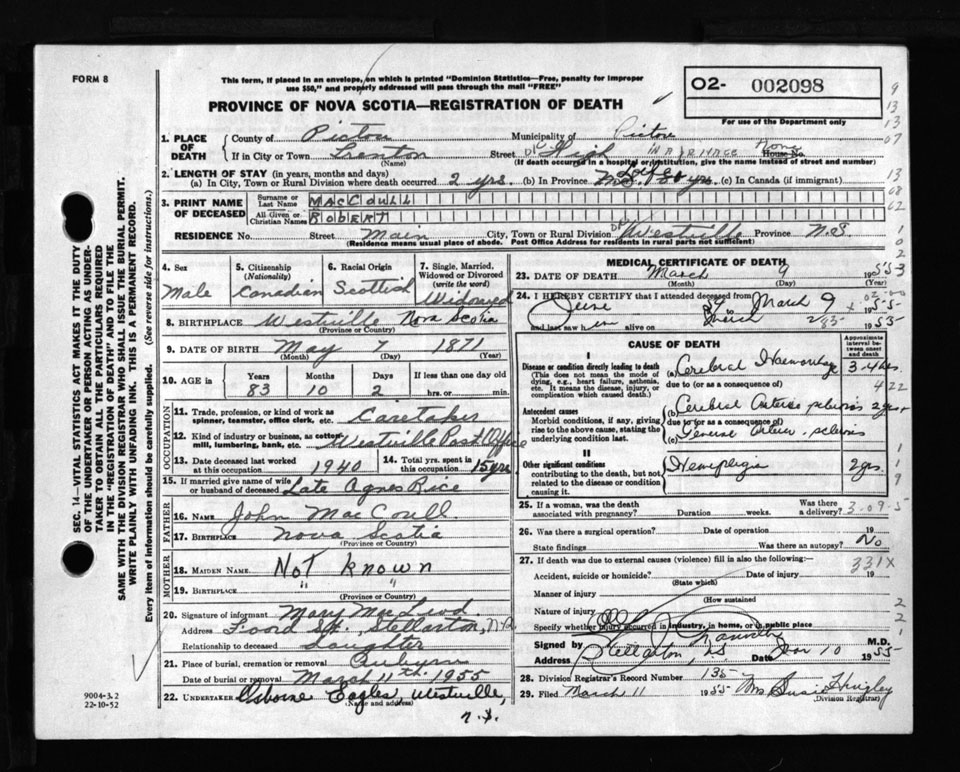 FORM 8
This form, if placed in an envelope, on which is printed "Dominion Statistics—Free, penalty for improper
use $50," and properly addressed will pass through the mail "FREE"
O2- 002098
For use of the Department only
PROVINCE OF NOVA SCOTIA—REGISTRATION OF DEATH
1. PLACE OF DEATH
County of Pictou Municipality of Pictou
If in City or Town Trenton Street High House No.
(Name) (If death occurred in a hospital or institution, give the name instead of street and number)
2. LENGTH OF STAY (in years, months and days)
(a) In City, Town or Rural Division where death occurred 2 yrs. (b) In Province Life (c) In Canada (if immigrant)
3. PRINT NAME OF DECEASED
Surname or Last Name MACCOULL
All Given or Christian Names ROBERT
RESIDENCE No. Street Main City, Town or Rural Division Westville Province N.S.
(Residence means usual place of abode. Post Office Address for residents in rural parts not sufficient)
4. Sex Male
5. Citizenship (Nationality) Canadian
6. Racial Origin Scottish
7. Single, Married, Widowed or Divorced (write the word) Widowed
8. BIRTHPLACE Westville Nova Scotia
(Province or Country)
9. DATE OF BIRTH May 7 1871
(Month) (Day) (Year)
10. AGE in Years Months Days If less than one day
83 10 2 hrs. or min.
OCCUPATION
11. Trade, profession, or kind of work as spinner, teamster, office clerk, etc. Caretaker
12. Kind of industry or business, as cotton mill, lumbering, bank, etc. Westville Post Office
13. Date deceased last worked at this occupation 1940
14. Total yrs. spent in this occupation 15 yrs
15. If married give name of wife or husband of deceased Late Agnes Rice
FATHER
16. NAME John MacCoull
17. BIRTHPLACE Nova Scotia
(Province or Country)
MOTHER
18. MAIDEN NAME Not known
19. BIRTHPLACE " "
(Province or Country)
20. Signature of informant Mary MacLeod
Address Foord St., Stellarton, N.S.
Relationship to deceased Daughter
21. Place of burial, cremation or removal Auburn
Date of burial or removal March 11th 1955
22. UNDERTAKER Osborne Eagles, Westville, N.S.
(Name and address)
MEDICAL CERTIFICATE OF DEATH
23. DATE OF DEATH March 9 1955
(Month) (Day)
24. I HEREBY CERTIFY that I attended deceased from
June 54 to March 9 1955
and last saw him alive on March 1955
CAUSE OF DEATH
Approximate interval between onset and death
I
Disease or condition directly leading to death
(This does not mean the mode of dying, e.g., heart failure, asthenia, etc. It means the disease, injury, or complication which caused death.)
(a) Cerebral Haemorrhage 3-4 hrs
due to (or as a consequence of)
Antecedent causes
Morbid conditions, if any, giving rise to the above cause, stating the underlying condition last.
(b) Cerebral Arterio sclerosis 2 yrs
due to (or as a consequence of)
(c) General Arterio-sclerosis
II
Other significant conditions
contributing to the death, but not related to the disease or condition causing it.
Hemiplegia 2 yrs.
25. If a woman, was the death associated with pregnancy? Duration weeks. Was there a delivery?
26. Was there a surgical operation? Date of operation 19
State findings Was there an autopsy? No
27. If death was due to external causes (violence) fill in also the following:
331X
Accident, suicide or homicide? Date of injury 19
(State which)
Manner of injury
(How sustained
Nature of injury
Specify whether injury occurred in industry, in home, or in public place
Signed by M.D.
Address Stellarton, NS Date Mar 10 1955
28. Division Registrar's Record Number 135
29. Filed March 11 1955 Mrs Susie Hingley
(Division Registrar)
SEC. 14—VITAL STATISTICS ACT MAKES IT THE DUTY
OF THE UNDERTAKER OR PERSON ACTING AS UNDERTAKER
TO OBTAIN ALL THE PARTICULARS REQUIRED
IN THE "REGISTRATION OF DEATH" AND TO FILE THE
SAME WITH THE DIVISION REGISTRAR WHO SHALL ISSUE THE BURIAL PERMIT.
WRITE PLAINLY WITH UNFADING INK. THIS IS A PERMANENT RECORD.
Every item of information should be carefully supplied. (See reverse side for instructions.)
9004-3.2
22-10-52